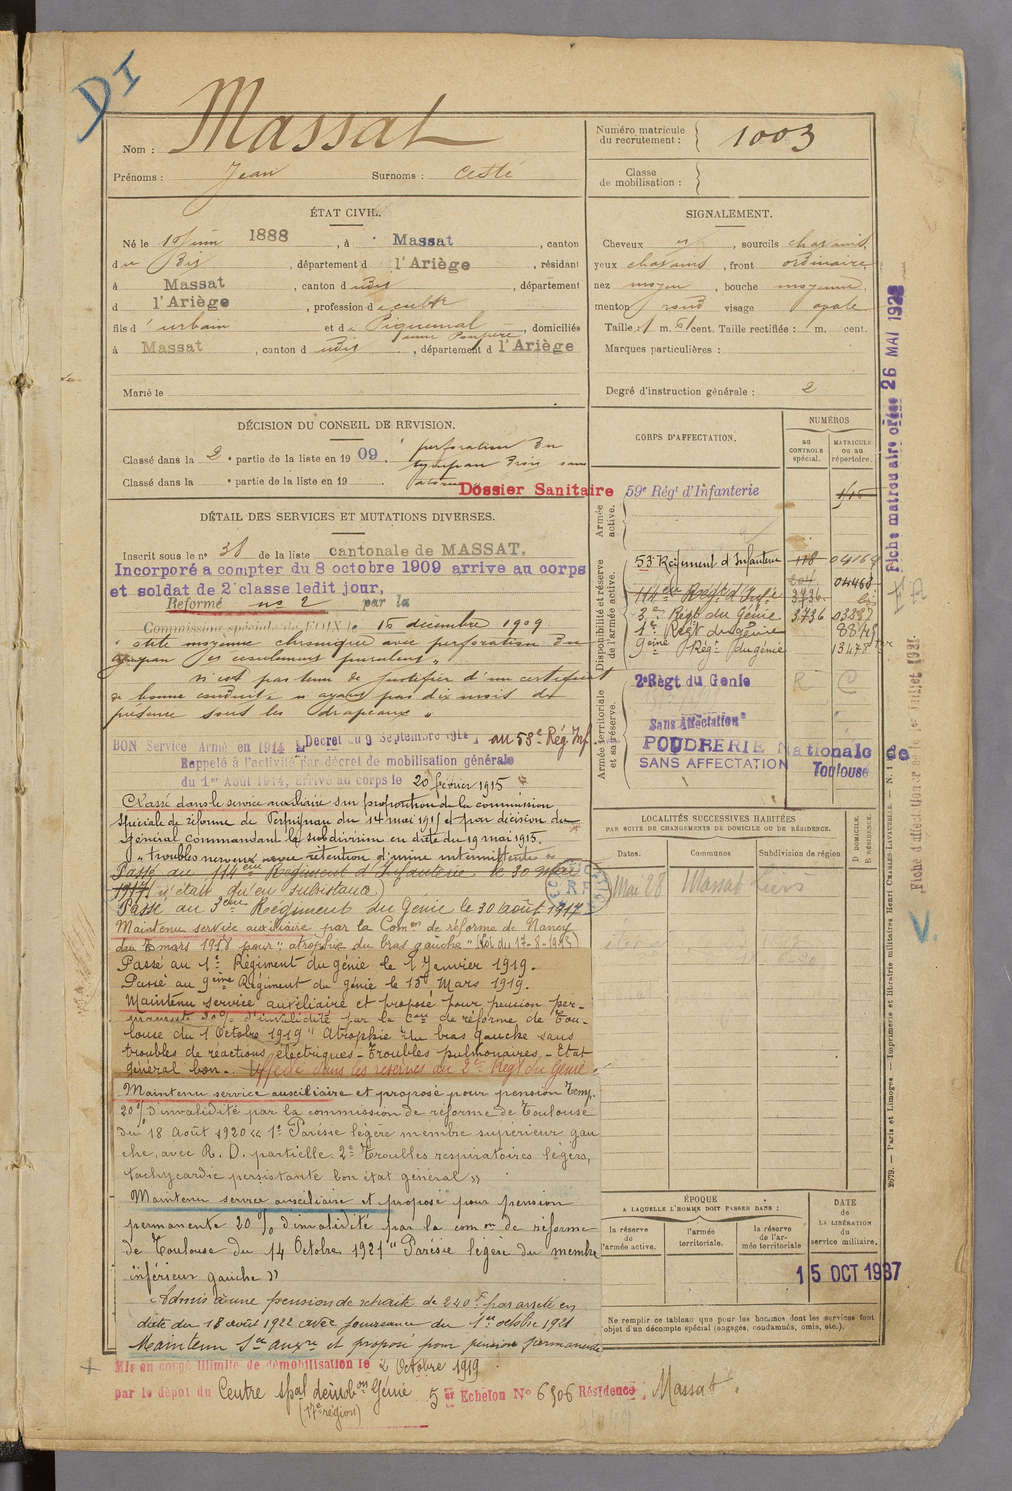 DI
Nom : Massat
Prénoms : Jean Surnoms : Cesté
Numéro matricule du recrutement : 1003
Classe de mobilisation :
ÉTAT CIVIL.
Né le 10 juin 1888, à Massat, canton
du dis, département d l'Ariège, résidant
à Massat, canton d udis, département
d l'Ariège, profession de cultr
fils d'urbain et de Piquemal, domiciliés
à Massat, canton d udis, département d l'Ariège
Marié le
SIGNALEMENT.
Cheveux, sourcils chatains
yeux chatains, front ordinaire
nez moyen, bouche moyenne,
menton rond visage ovale
Taille : 1 m. 61 cent. Taille rectifiée : m. cent.
Marques particulières :
Degré d'instruction générale : 2
DÉCISION DU CONSEIL DE REVISION.
Classé dans la 2e partie de la liste en 1909. perforation du
tympan droit sans
Classé dans la e partie de la liste en 19
Dossier Sanitaire
DÉTAIL DES SERVICES ET MUTATIONS DIVERSES.
Inscrit sous le no 38 de la liste cantonale de MASSAT.
Incorporé a compter du 8 octobre 1909 arrive au corps
et soldat de 2e classe ledit jour,
Reformé no 2 par la
Commission spéciale de FOIX le 16 decembre 1909.
" otite moyenne chronique avec perforation du
tympan et écoulement purulent "
n'est pas tenu de justifier d'un certificat
de bonne conduite n'ayant pas dix mois de
présence sous les drapeaux "
BON Service Armé en 1914 (Decret du 9 Septembre 1914) au 53e Rég Inf
Rappelé à l'activité par décret de mobilisation générale
du 1er Août 1914, arrivé au corps le 20 février 1915
Classé dans le service auxiliaire sur proposition de la commission
spéciale de réforme de Perpignan du 14 mai 1915 et par décision du
Général commandant la subdivision en date du 19 mai 1915.
" troubles nerveux avec rétention d'urine intermittente "
Passé au 114eme Regiment d'Infanterie le 30 mai
1917 (n'était qu'en subsistance)
Passé au 3eme Régiment du Génie le 30 août 1917
Maintenu service auxiliaire par la Comon de réforme de Nancy
du 7 mars 1918 pour " atrophie du bras gauche " (Loi du 17-8-1915)
Passé au 1er Régiment du génie le 1er Janvier 1919.
Passé au 9ème Régiment du génie le 15 Mars 1919.
Maintenu service auxiliaire et proposé pour pension per-
manente 20% d'invalidité par la Con de réforme de Tou-
louse du 1 Octobre 1919 " Atrophie du bras gauche sans
troubles de réactions électriques - troubles pulmonaires - Etat
général bon -. Affecté dans les réserves au 2e Régt du Génie
Maintenu service auxiliaire et proposé pour pension temp.
20% d'invalidité par la commission de réforme de Toulouse
du 18 Août 1920 « 1o Parésie légère membre supérieur gau
che, avec R. D. partielle. 2o Troubles respiratoires légers,
tachycardie persistante bon état général »
Maintenu service auxiliaire et proposé pour pension
permanente 20% d'invalidité par la comon de réforme
de Toulouse du 14 Octobre 1921 " Parésie légère du membre
inférieur gauche »
Admis à une pension de retraite de 240 F par arrêté en
date du 18 août 1922 avec jouissance du 1er octobre 1921
Maintenu Sce auxre et proposé pour pension permanente
Mis en congé illimité de démobilisation le 2 Octobre 1919.
par le dépot du Centre spal demobon Génie 5e Echelon No 6506 Résidence : Massat.
(17e région)
CORPS D'AFFECTATION.
NUMÉROS
au contrôle spécial.
MATRICULE ou au répertoire.
Armée active.
59e Régt d'Infanterie
Disponibilité et réserve de l'armée active.
53e Régiment d'Infanterie 118 04169
204 04468
114er Régt d'Infie 3736 bis
3e Régt du Génie 3736 03287
1er Régt du génie
9eme Rég. du génie 13478
Armée territoriale et sa réserve.
2e Règt du Genie
R C
Sans Affectation
POUDRERIE Nationale de
SANS AFFECTATION Toulouse
LOCALITÉS SUCCESSIVES HABITÉES
PAR SUITE DE CHANGEMENTS DE DOMICILE OU DE RÉSIDENCE.
Dates. Communes Subdivision de région
D DOMICILE. R RÉSIDENCE.
Mai 28 Massat
ÉPOQUE
A LAQUELLE L'HOMME DOIT PASSER DANS :
la réserve de l'armée active.
l'armée territoriale.
la réserve de l'armée territoriale
DATE de LA LIBÉRATION du service militaire.
15 OCT 1937
Ne remplir ce tableau que pour les hommes dont les services font
objet d'un décompte spécial (engagés, condamnés, omis, etc.).
Fiche matriculaire créée 26 MAI 1928
2679. — Paris et Limoges. — Imprimerie et librairie militaires Henri CHARLES-LAVAUZELLE. — N. 1
V.